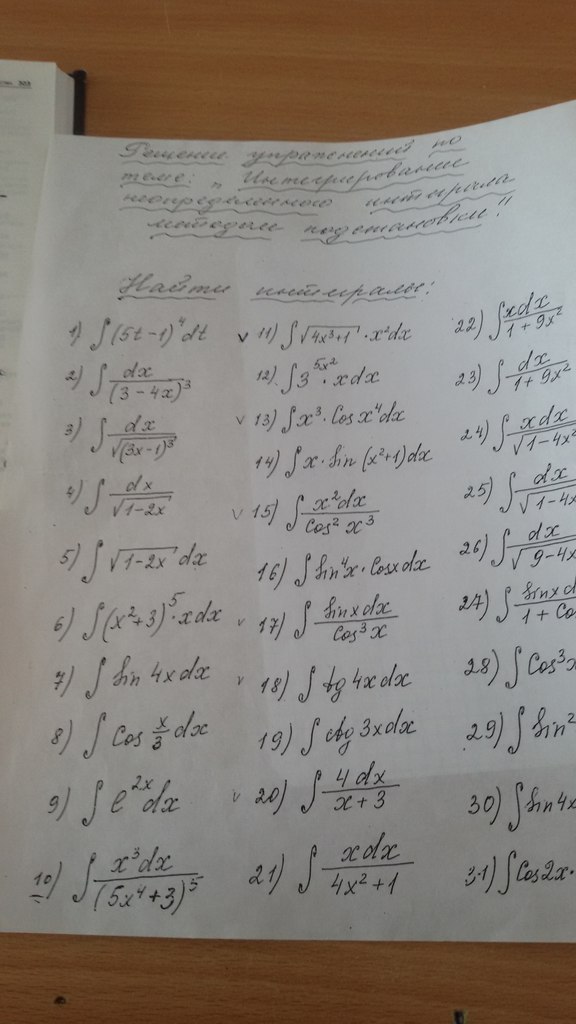 Решение упражнений по
теме: „Интегрирование
неопределенного интеграла
методом подстановки"!
Найти интегралы:
1) ∫(5t-1)⁴dt
2) ∫dx/(3-4x)³
3) ∫dx/√(3x-1)³
4) ∫dx/√1-2x
5) ∫√1-2x dx
6) ∫(x²+3)⁵·xdx
7) ∫sin 4xdx
8) ∫cos x/3 dx
9) ∫e²ˣdx
10) ∫x³dx/(5x⁴+3)⁵
v 11) ∫√4x³+1·x²dx
12) ∫3^5x²·xdx
v 13) ∫x³·Cosx⁴dx
14) ∫x·sin(x²+1)dx
v 15) ∫x²dx/Cos²x³
16) ∫sin⁴x·Cosxdx
v 17) ∫sinxdx/Cos³x
v 18) ∫tg4xdx
19) ∫ctg3xdx
v 20) ∫4dx/x+3
21) ∫xdx/4x²+1
22) ∫xdx/1+9x²
23) ∫dx/1+9x²
24) ∫xdx/√1-4x²
25) ∫dx/√1-4x
26) ∫dx/√9-4x
27) ∫sinxd/1+Co
28) ∫Cos³x
29) ∫sin²
30) ∫sin4x
31) ∫Cos2x·